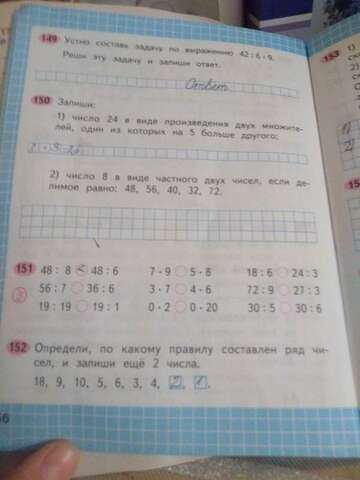 149 Устно составь задачу по выражению 42 : 6 · 9.
Реши эту задачу и запиши ответ.
Ответ
150 Запиши:
1) число 24 в виде произведения двух множите-
лей, один из которых на 5 больше другого;
2) число 8 в виде частного двух чисел, если де-
лимое равно: 48, 56, 40, 32, 72.
151 48 : 8 < 48 : 6 7 · 9 5 · 8 18 : 6 24 : 3
56 : 7 36 : 6 3 · 7 4 · 6 72 : 9 27 : 3
19 : 19 19 : 1 0 · 2 0 · 20 30 : 5 30 : 6
152 Определи, по какому правилу составлен ряд чи-
сел, и запиши ещё 2 числа.
18, 9, 10, 5, 6, 3, 4, 2, 1.
153